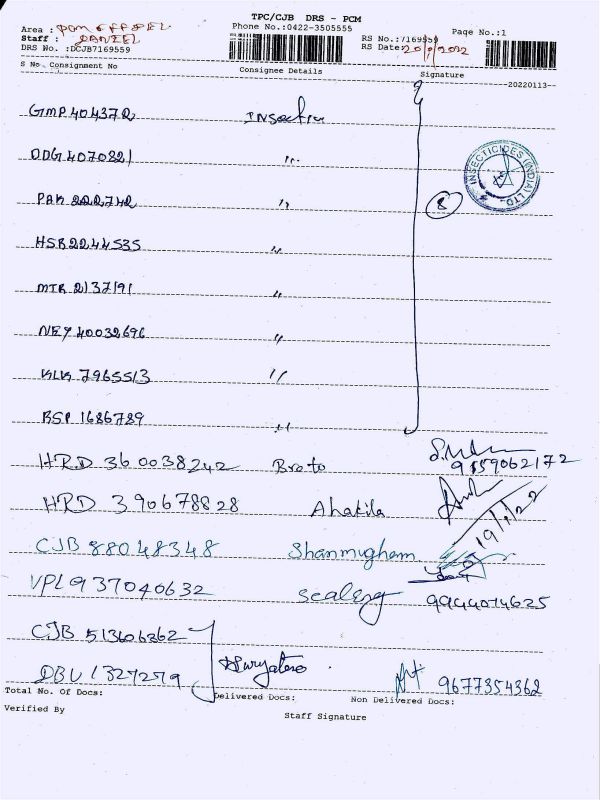 TPC/CJB DRS - PCM
Area : PCM OFFDEL
Phone No.:0422-3505555
Page No.:1
Staff : DANIEL
RS No.:7169559
DRS No. :DCJB7169559
RS Date: 20/1/2022
S No Consignment No Consignee Details Signature
20220113
GMP 404372
DDG 4070221 "
INSECTICIDES (INDIA) LTD.
PAK 222742 " 8
HSB 2244535 "
MTR 2137191 "
NEY 40032696 "
KLK 7965513 "
RSP 1686789 "
HRD 360038242 Broto
9159062172
HRD 390678828 Ahakila
19/1/22
CJB 88048348 Shanmugham
VPL 937040632 Sealing 9944074625
CJB 513606362
DBU 1327279 9677354362
Total No. Of Docs: Delivered Docs: Non Delivered Docs:
Verified By
Staff Signature